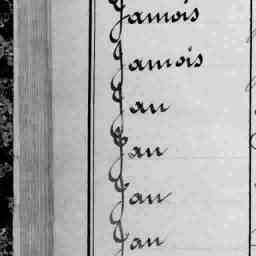 Jamois
Jamois
Jau
Jau
Jau
Jau